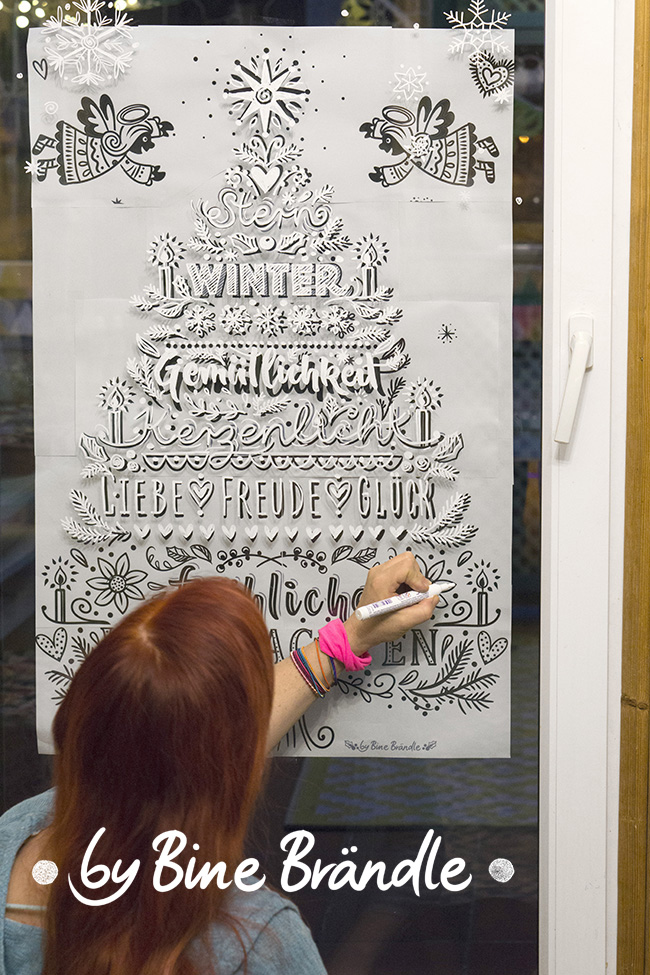 Stern
WINTER
Gemütlichkeit
Kerzenlicht
LIEBE FREUDE GLÜCK
by Bine Brändle
by Bine Brändle